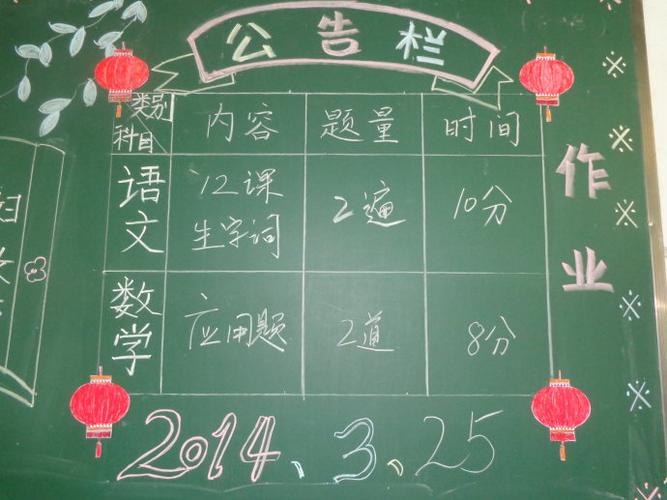 公告栏
类别
科目
内容 题量 时间
语文 12课生字词 2遍 10分
数学 应用题 2道 8分
作业
2014、3、25